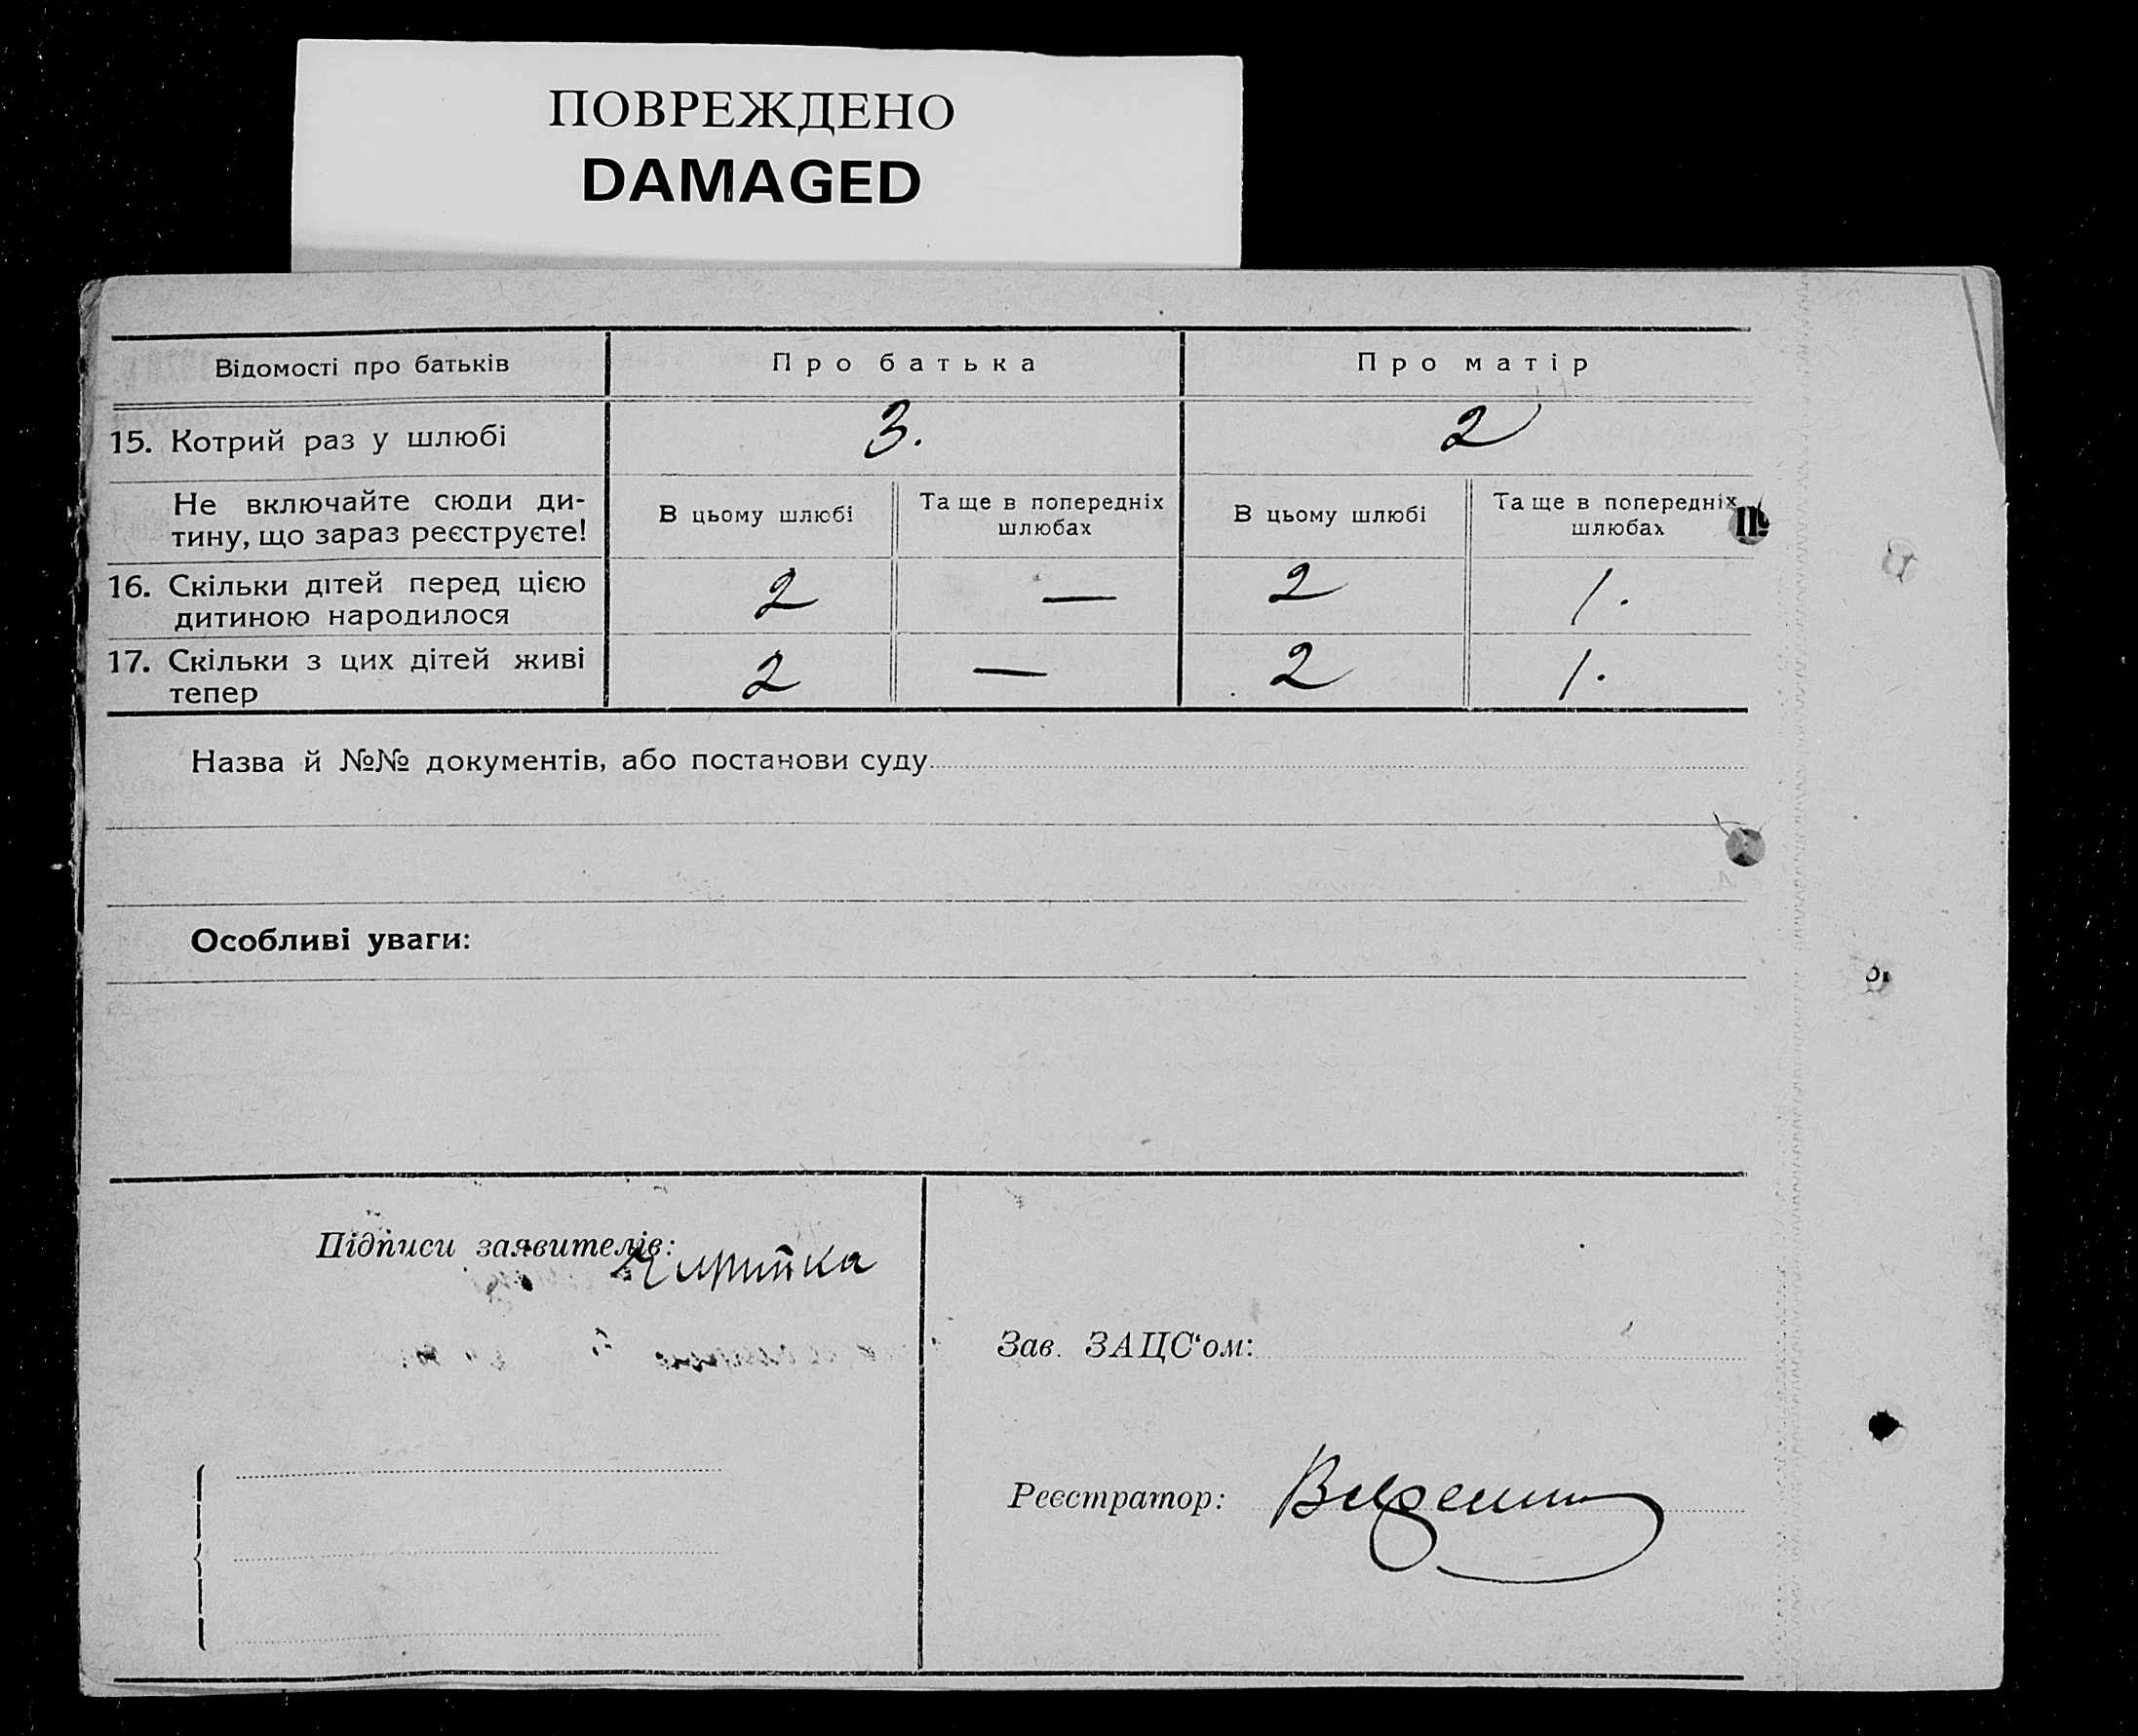 ПОВРЕЖДЕНО
DAMAGED
Відомості про батьків
Про батька
Про матір
15. Котрий раз у шлюбі
3.
2
Не включайте сюди ди-
тину, що зараз реєструєте!
В цьому шлюбі
Та ще в попередніх
шлюбах
В цьому шлюбі
Та ще в попередніх
шлюбах
16. Скільки дітей перед цією
дитиною народилося
2
—
2
1.
17. Скільки з цих дітей живі
тепер
2
—
2
1.
Назва й №№ документів, або постанови суду
Особливі уваги:
Підписи заявителів:
Зав. ЗАЦС‘ом:
Реєстратор: